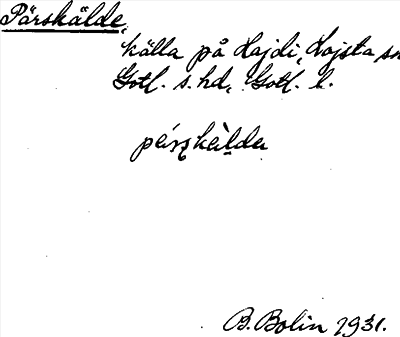 Pärskälde,
källa på Hajdi, Lojsta sn
Gotl. s. hd, Gotl. l.
pérskàldeu
B. Bolin 1931.